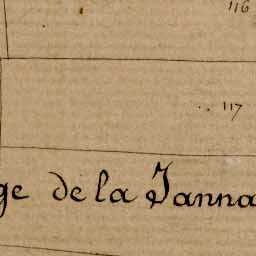 116
117
ge de la Janna